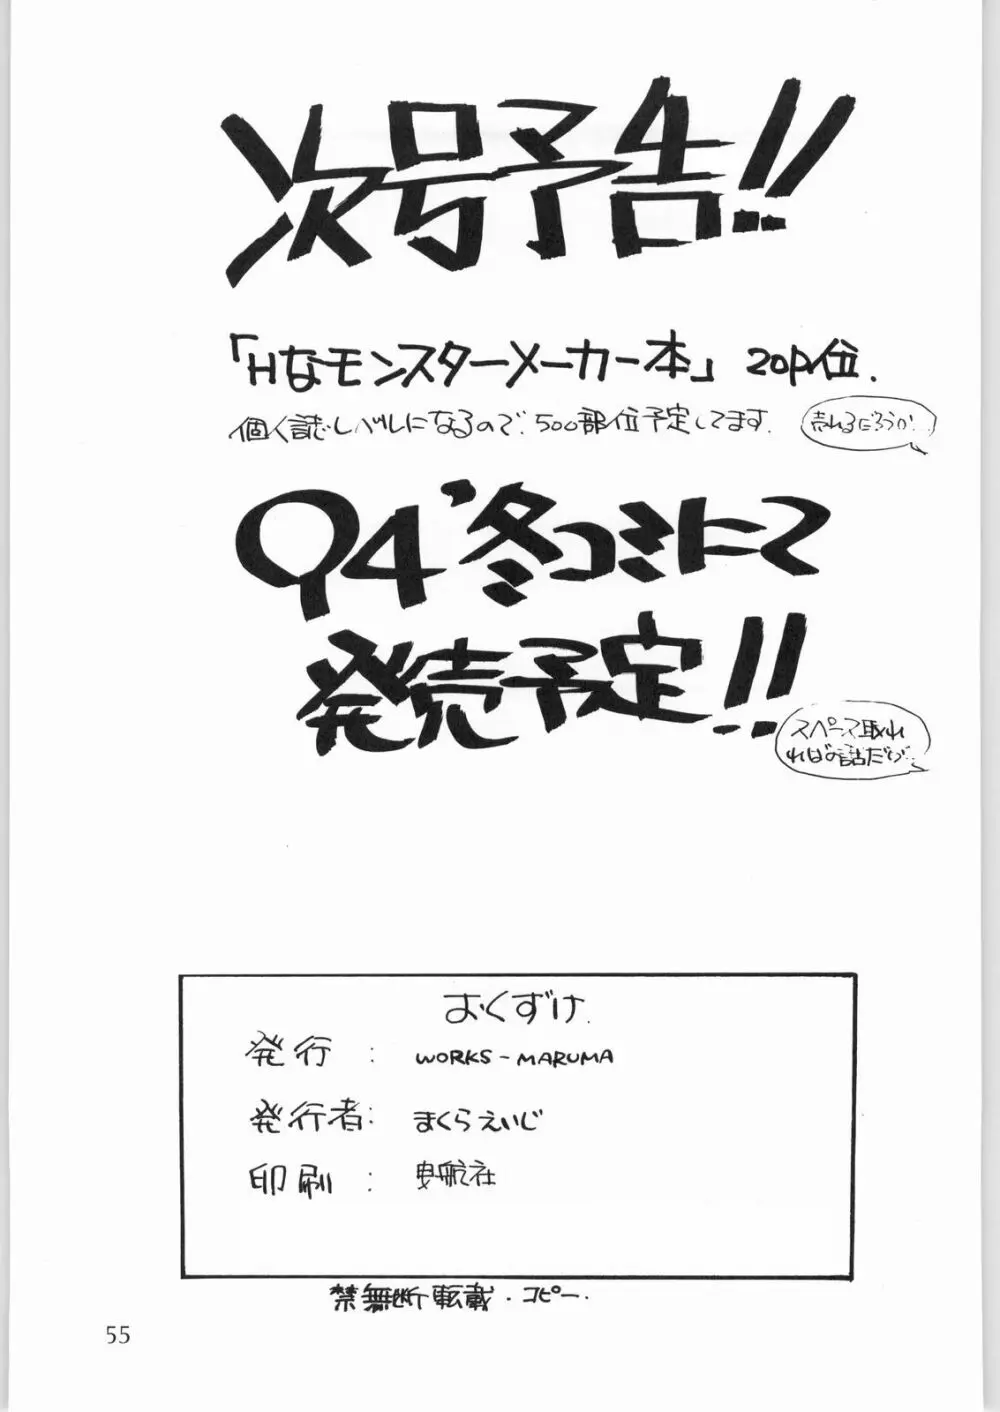 次号予告!!
「Hなモンスターメーカー本」 20p位.
個人誌レベルになるので、500部位予定してます.
売れるだろうか…
94'冬コミにて
発売予定!!
スペース取れ
ればの話だが…
おくずけ.
発行 : WORKS-MARUMA
発行者: まくらえいじ
印刷 : 曳航社
禁無断転載・コピー.
55